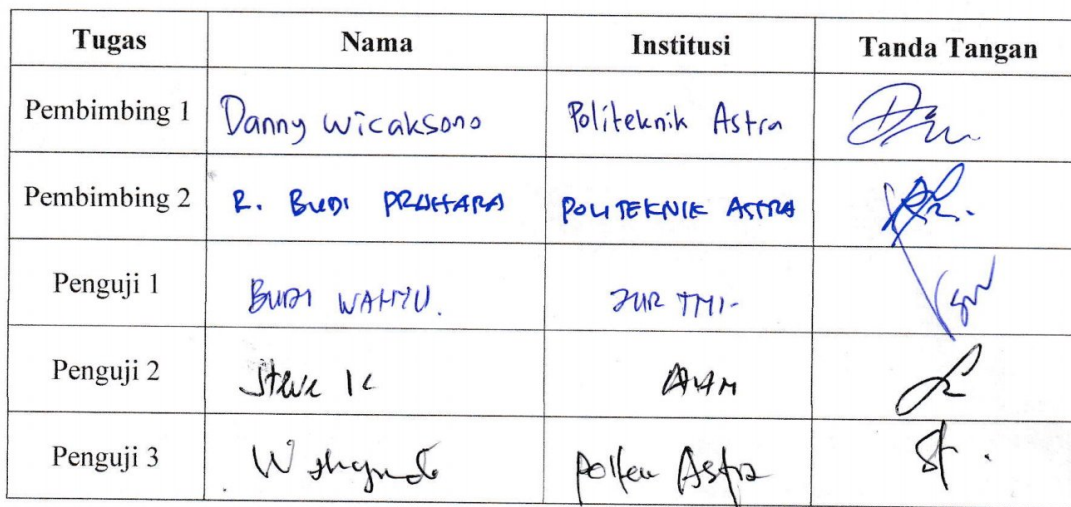 Tugas Nama Institusi Tanda Tangan
Pembimbing 1 Danny Wicaksono Politeknik Astra
Pembimbing 2 R. BUDI PRAHARA POLITEKNIK ASTRA
Penguji 1 BUDI WAHYU. JUR TMI-
Penguji 2 Steve K
Penguji 3 Astra